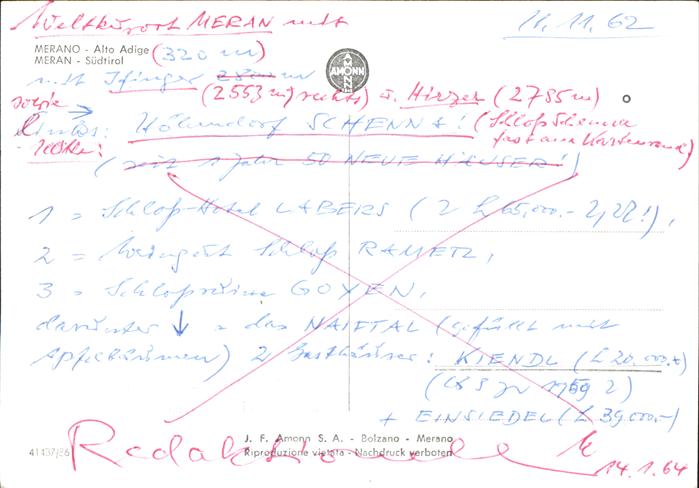 Weltkurort MERAN mit 11.11.62
MERANO - Alto Adige (320 m)
MERAN - Südtirol
AMONN
mit Ifinger m
(2553 m) rechts) u. Hirzer (2785 m)
sowie
links: Höhendorf SCHENNA! (Schloß Schenna
rechts: fast am Kartenrand)
(seit 1 Jahr 50 NEUE HÄUSER!)
1 = Schloß-Hotel LABERS (2 L 65,000.-
2 = Weingut Schloß RAMETZ,
3 = Schloßruine GOYEN,
darunter ↓ = das NAIFTAL (gefüllt mit
Apfelbäumen) 2 Gasthäuser: KIENDL (L 20.000.+)
+ EINSIEDEL (L 39000.-)
J. F. Amonn S. A. - Bolzano - Merano
41437/86 Riproduzione vietata - Nachdruck verboten
14.1.64